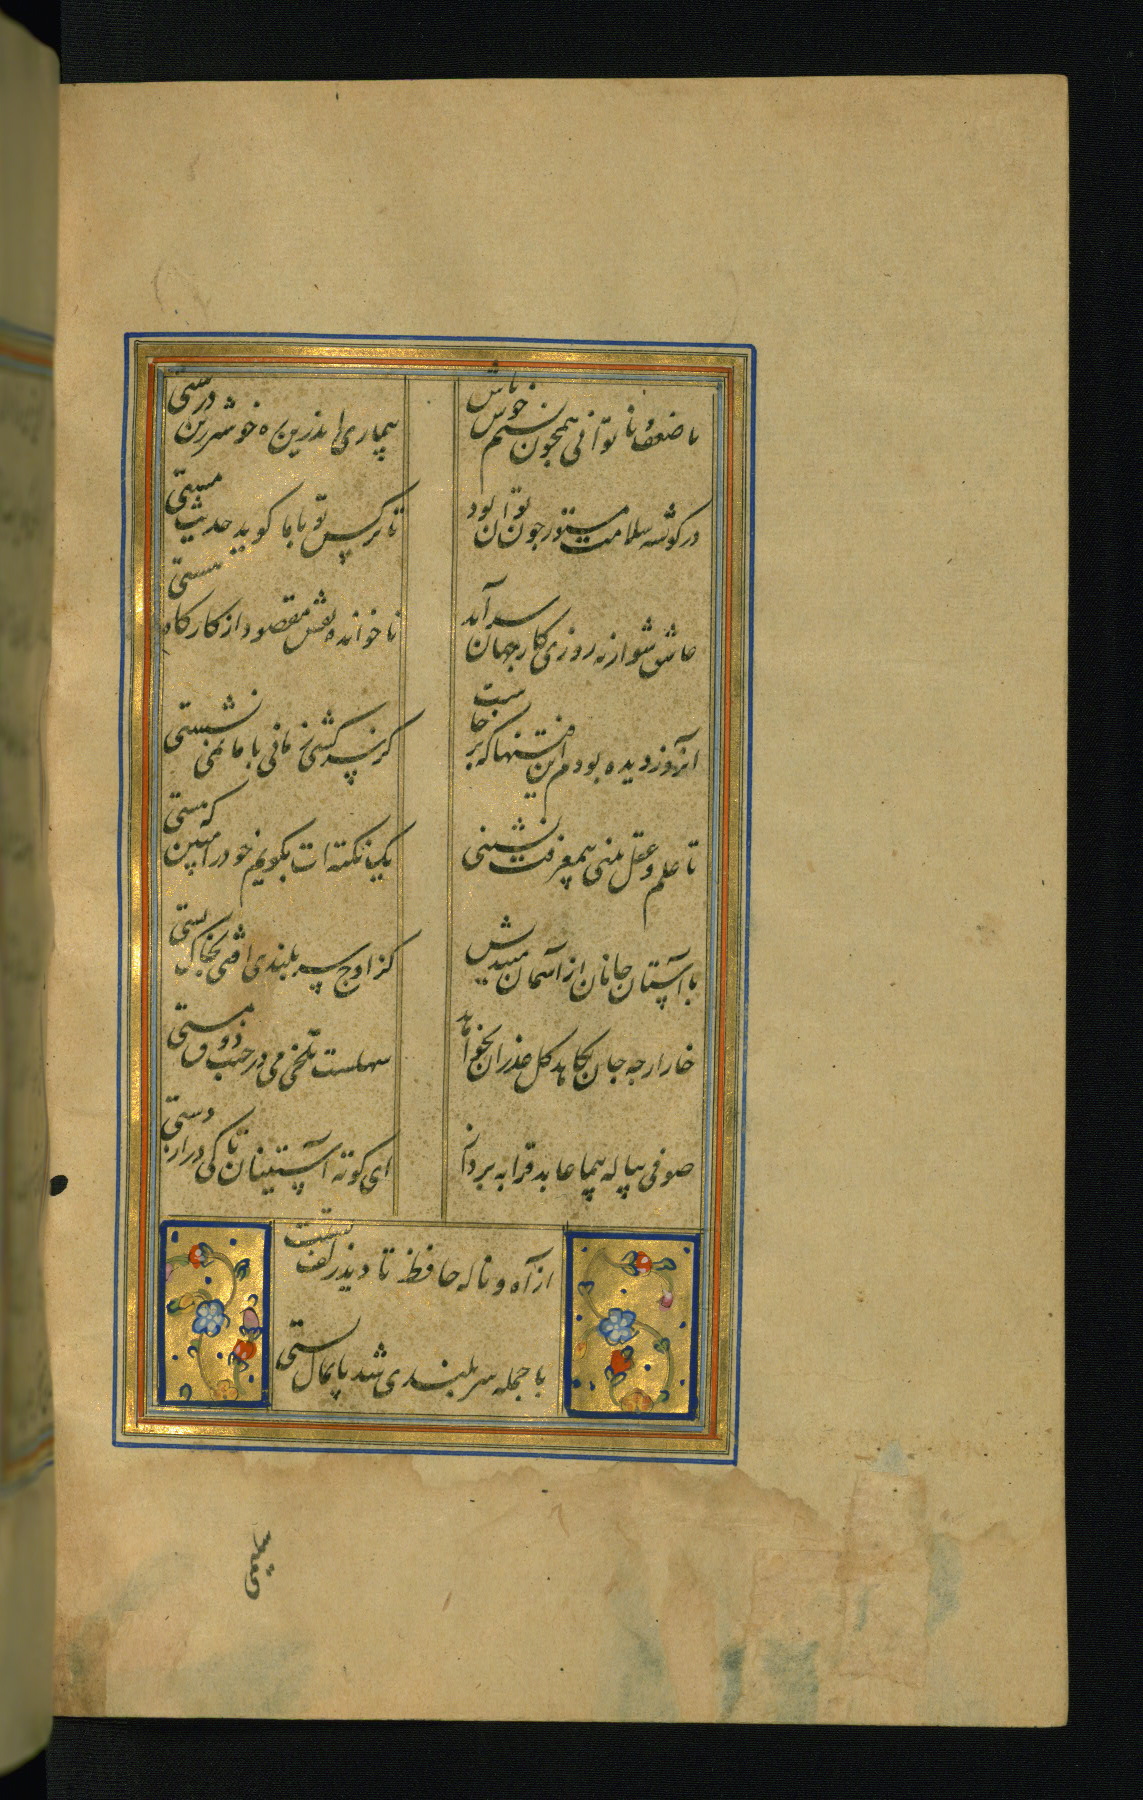 با ضعف و ناتوانی همچون نسیم خوش باش
بیماری اندرین ره خوشتر ز تن درستی
در کوشه سلامت مستور چون توان بود
تا نرکس تو با ما کوید حدیث مستی
عاشق شو ار نه روزی کار جهان سر آید
ناخوانده نقش مقصود از کارکاه هستی
آنروز دیده بودم این فتنها که بر خاست
کز سرکشی زمانی با ما نمی نشستی
تا علم و عقل بینی بی معرفت نشینی
یک نکته ات بکویم خود را مبین که رستی
با آستان جانان از آسمان میندیش
کز اوج سر بلندی افتی بخاک پستی
خار ارچه جان بکاهد کل عذر آن بخواهد
سهلست تلخی می در جنب ذوق مستی
صوفی پیاله پیما عابد قرابه بردار
ای کوته آستینان تا کی دراز دستی
از آه و ناله حافظ تا دید زلفت
با جمله سر بلندی شد پایمال پستی